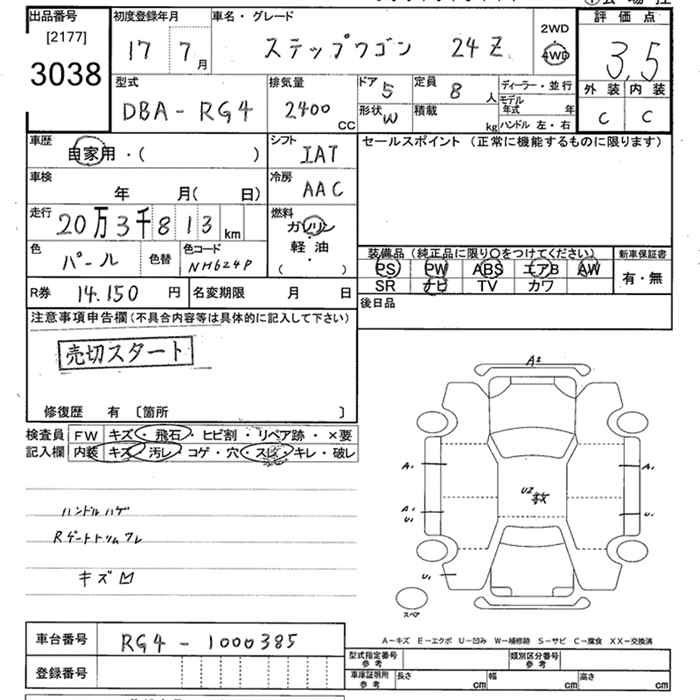 出品番号 [2177] 3038
初度登録年月 17 7月
車名・グレード ステップワゴン 24Z
2WD 4WD
評価点 3.5
外装 内装
C C
型式 DBA-RG4
排気量 2400 CC
ドア 5
形状 W
定員 8 人
積載 kg
ディーラー・並行
モデル年式 年
ハンドル 左・右
車歴 自家用・( )
シフト IAT
セールスポイント (正常に機能するものに限ります)
車検 年 月( 日)
冷房 AAC
走行 20万3千813 km
燃料 ガソリン
軽・油
( )
色 パール 色替 色コード NH624P
装備品 (純正品に限り○をつけてください)
PS PW ABS エアB AW
SR ナビ TV カワ
新車保証書 有・無
R券 14.150 円 名変期限 月 日
後日品
注意事項申告欄 (不具合内容等は具体的に記入して下さい)
売切スタート
修復歴 有 〔箇所 〕
検査員記入欄
FW キズ・飛石・ヒビ割・リペア跡・×要
内装 キズ・汚レ・コゲ・穴・スレ・キレ・破レ
ハンドルハゲ
Rゲートトリムワレ
キズ凹
A2
A1
A1
A1
U1
U2
U1
U1
スペア
A-キズ E-エクボ U-凹み W-補修跡 S-サビ C-腐食 XX-交換済
車台番号 RG4-1000385
登録番号
型式指定番号 参考
類別区分番号 参考
車庫証明用 参考 長さ cm 幅 cm 高さ cm